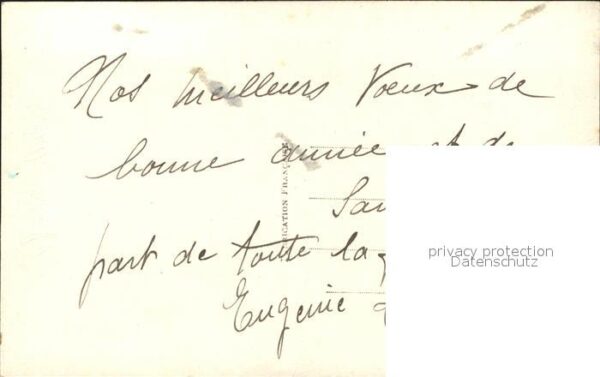 Nos meilleurs Vœux de
bonne année et de
part de toute la
Eugenie
ICATION FRANÇA
privacy protection
Datenschutz